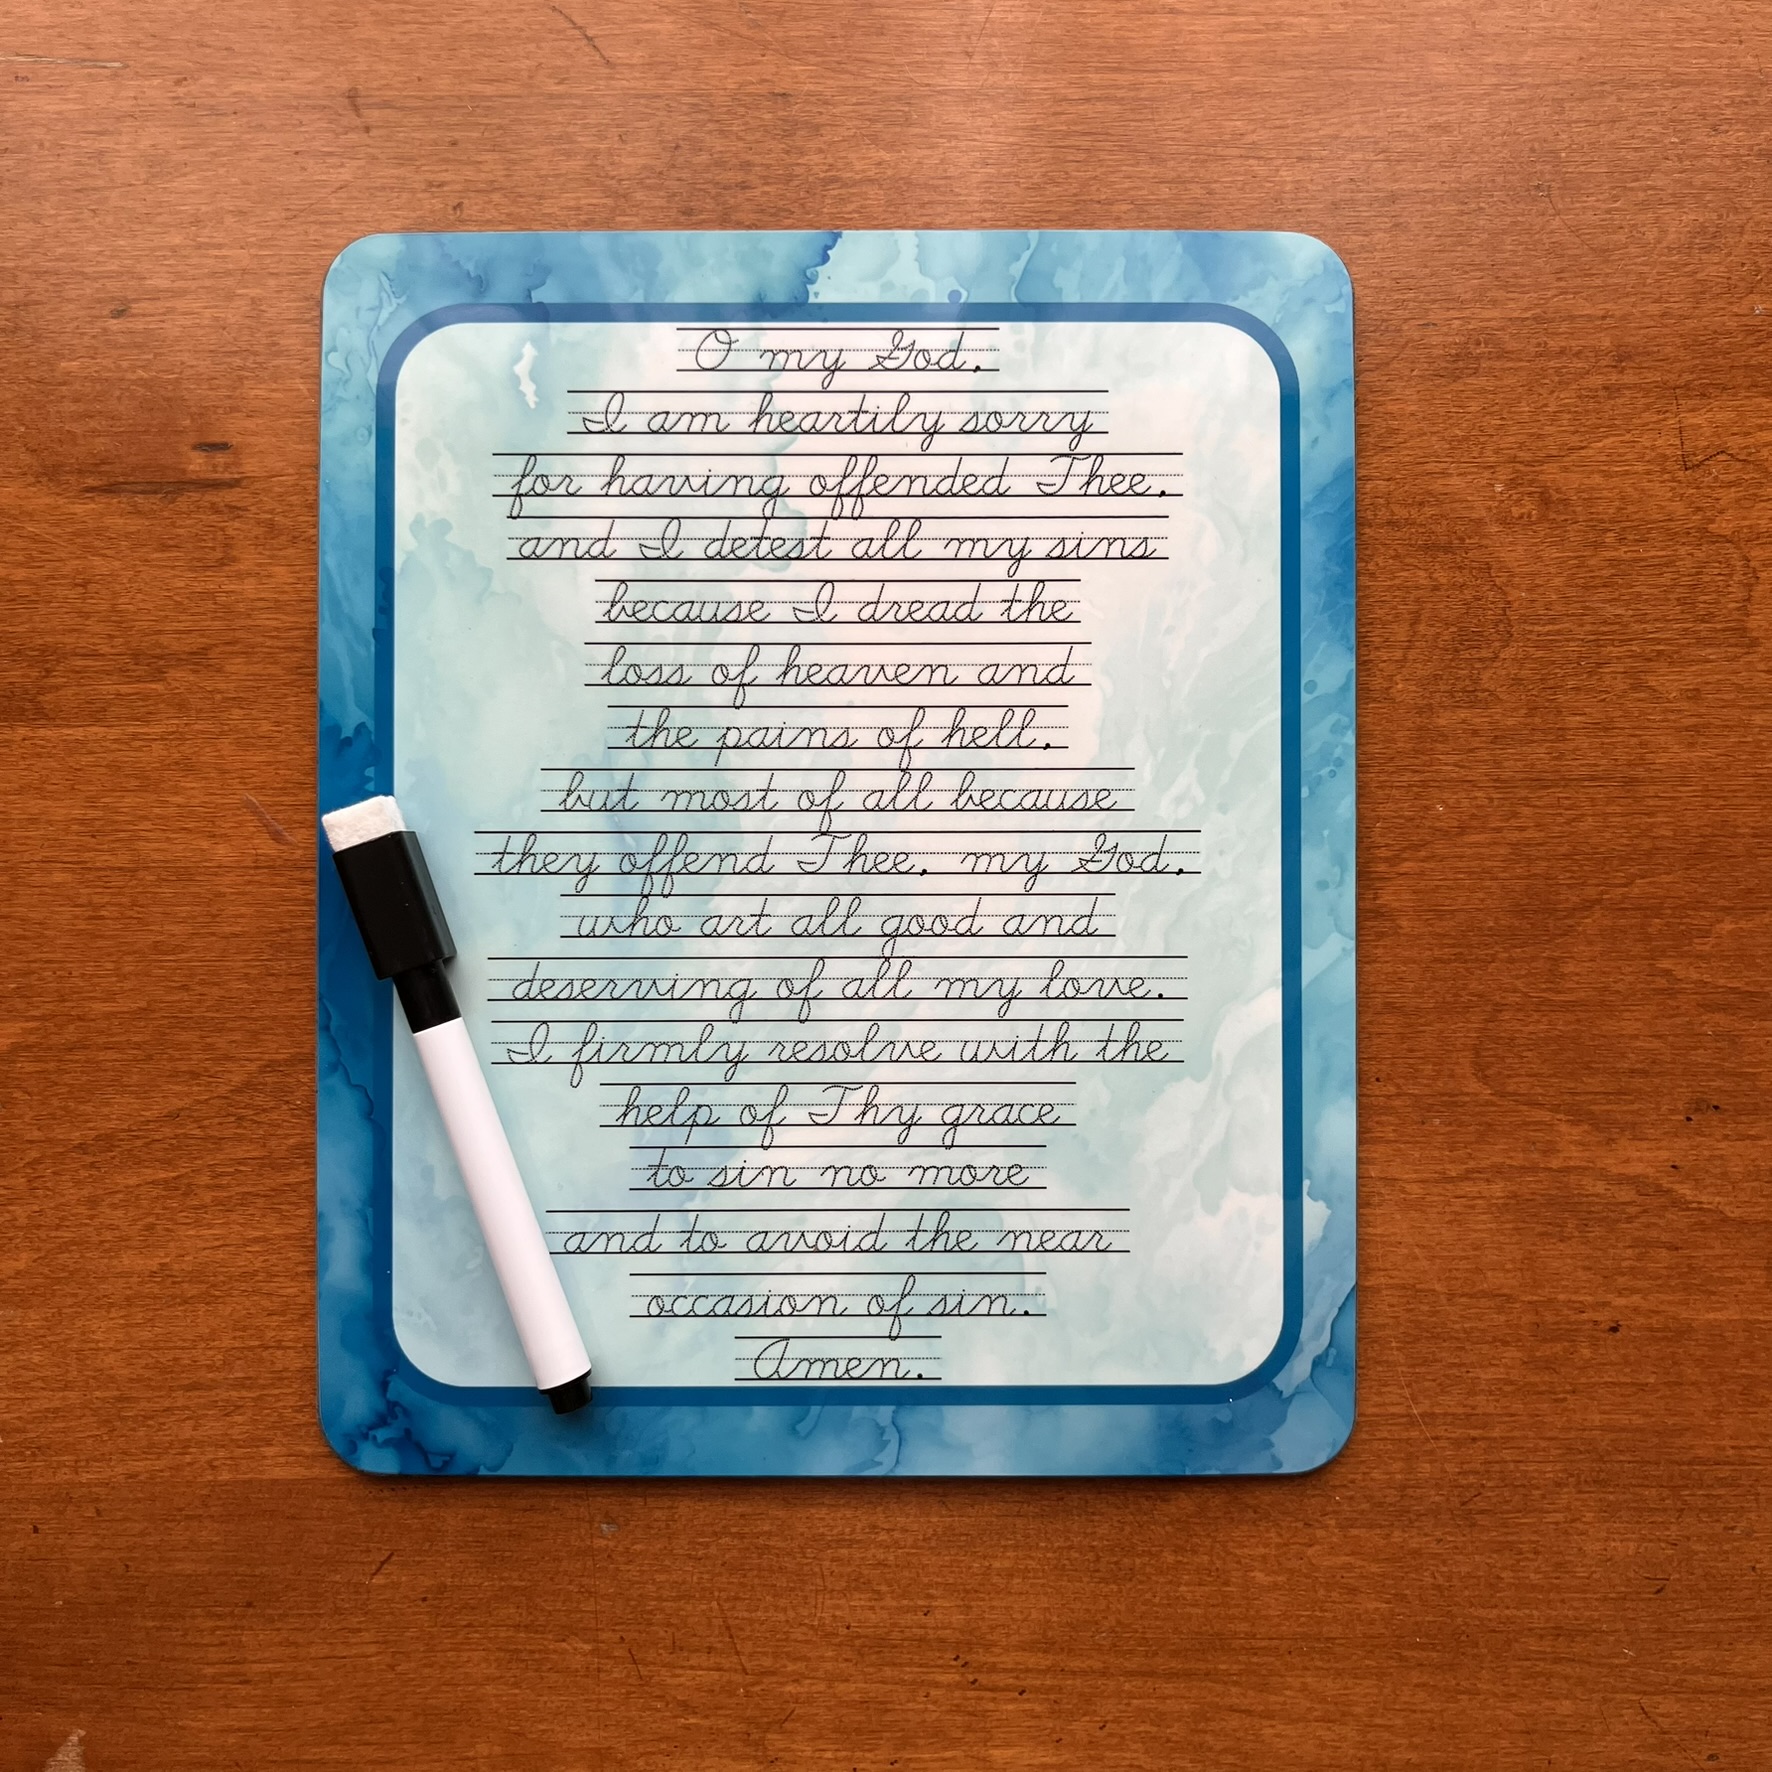 O my God,
I am heartily sorry
for having offended Thee,
and I detest all my sins
because I dread the
loss of heaven and
the pains of hell,
but most of all because
they offend Thee, my God,
who art all good and
deserving of all my love.
I firmly resolve with the
help of Thy grace
to sin no more
and to avoid the near
occasion of sin.
Amen.